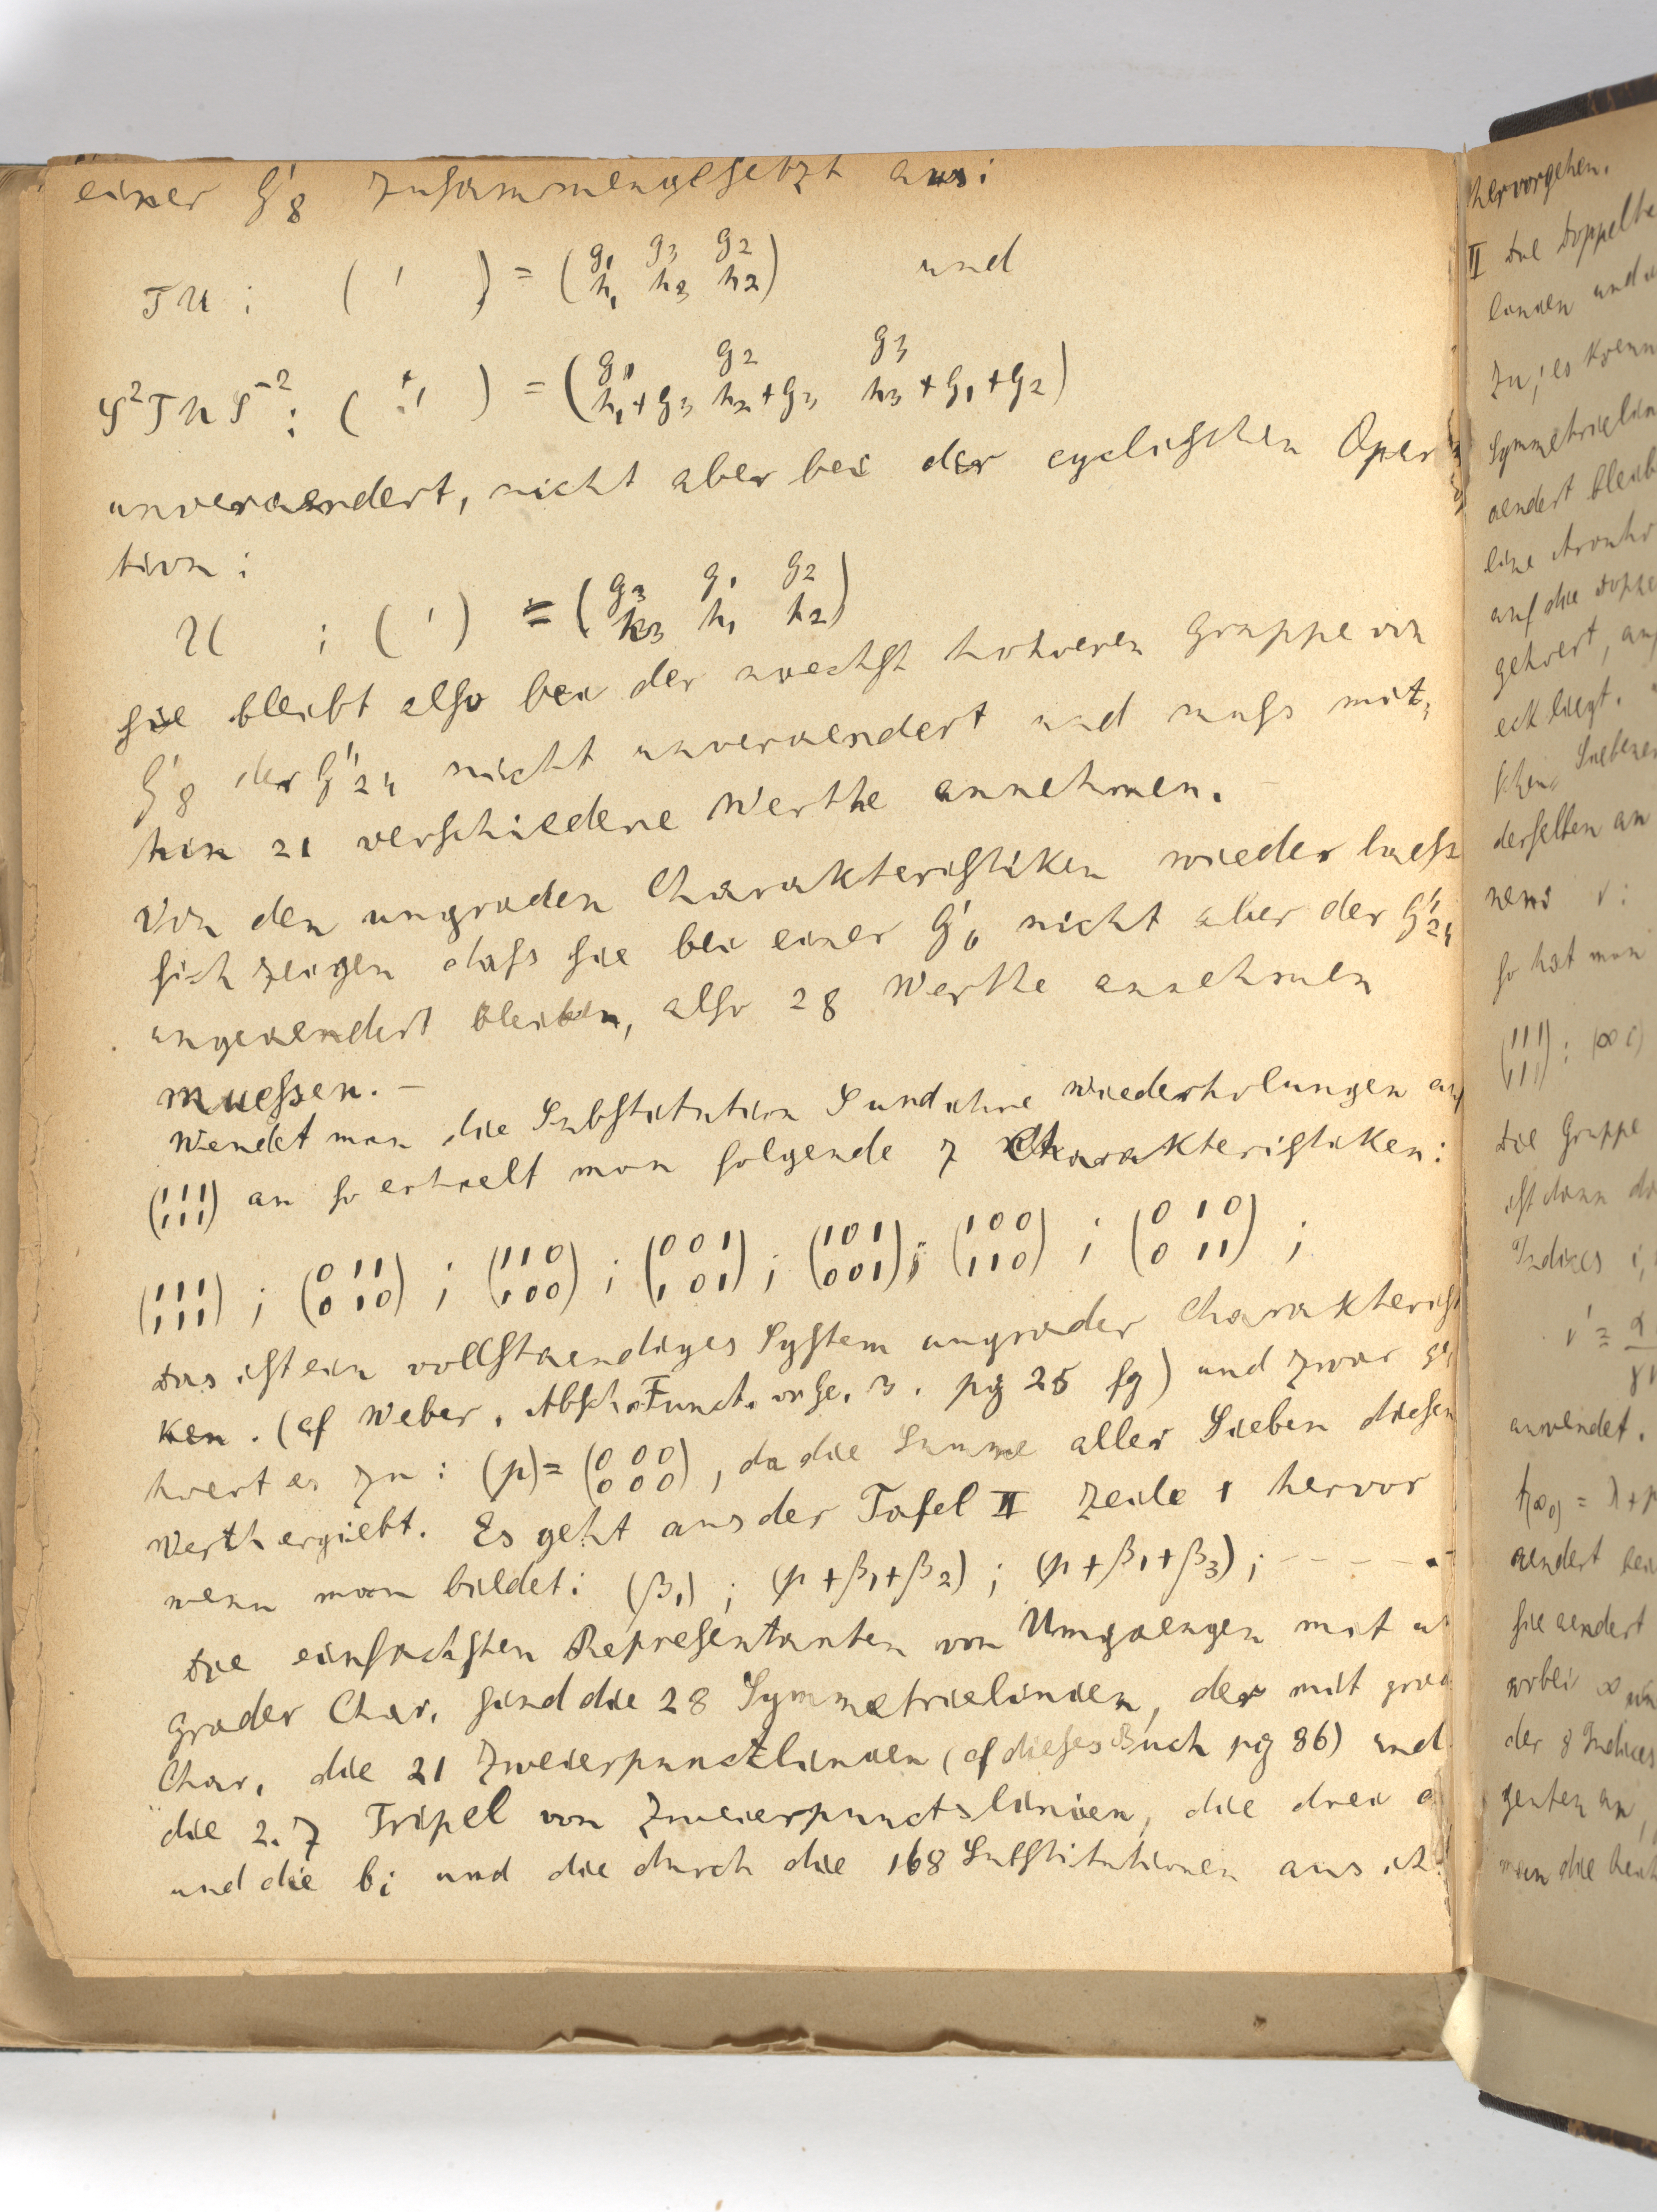 einer G'8 zusammengesetzt aus:
TU : ( ' ) = (g1 g3 g2 / h1 h3 h2) und
S²TUS⁻² : ( '' ) = (g1 g2 g3 / h1+g3 h2+g3 h3+g1+g2)
unveraendert, nicht aber bei der cyclischen Oper
tion :
U : ( ' ) = (g3 g1 g2 / h3 h1 h2)
sie bleibt also bei der naechst hoheren Gruppe von
G'8 der G''24 nicht unveraendert und muss mit-
hin 21 verschiedene Werthe annehmen.
Von den ungraden Charakteristiken wieder laesst
sich zeigen dass sie bei einer G'6 nicht aber der G''24
ungeaendert bleiben, also 28 Werthe annehmen
muessen. –
Wendet man die Substitution S und ihre Wiederholungen auf
(111 / 111) an so erhaelt man folgende 7 Charakteristiken:
(111 / 111) ; (011 / 010) ; (110 / 100) ; (001 / 101) ; (101 / 001) ; (100 / 110) ; (010 / 011) ;
Das ist ein vollstaendiges System ungrader Charakteristi
ken. (cf Weber, Absch. Funct. von Ge. 3. pg 25 fg) und zwar ge
hoert es zu : (p) = (000 / 000), da die Summe aller Sieben diesen
Werth ergiebt. Es geht aus der Tafel II Zeile 1 hervor
wenn man bildet : (β1) ; (p+β1+β2) ; (p+β1+β3) ; – – – –
Die einfachsten Representanten von Umgaengen mit un
grader Char. sind die 28 Symmetrielinien, der mit grad
Char. die 21 Zweierpunctlinien (cf dieses Buch pg 86) und
die 2.7 Tripel von Zweierpunctslinien, die drei a
und die bi und die durch die 168 Substitutionen aus ih
hervorgehen.
II Die Doppelta
linien und
zu; es koenn
Symmetrielin
aendert bleib
auf die Doppe
gehoert, au
eck liegt.
derselben an
so hat man
(111 / 111) : (∞ 0)
Die Gruppe
ist dann
Indices i,
anwendet.
aendert
sie aendert
wobei ∞
der 8 Indices
genten an,
man die